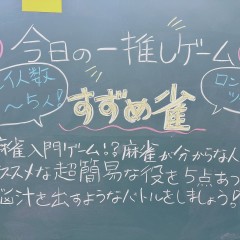 今日の一推しゲーム
人数
～5人!
ロン
ッ
すずめ雀
麻雀入門ゲーム!?麻雀が分からない人
ススメな超簡易な役を5点あつ
脳汁を出すようなバトルをしましょう!